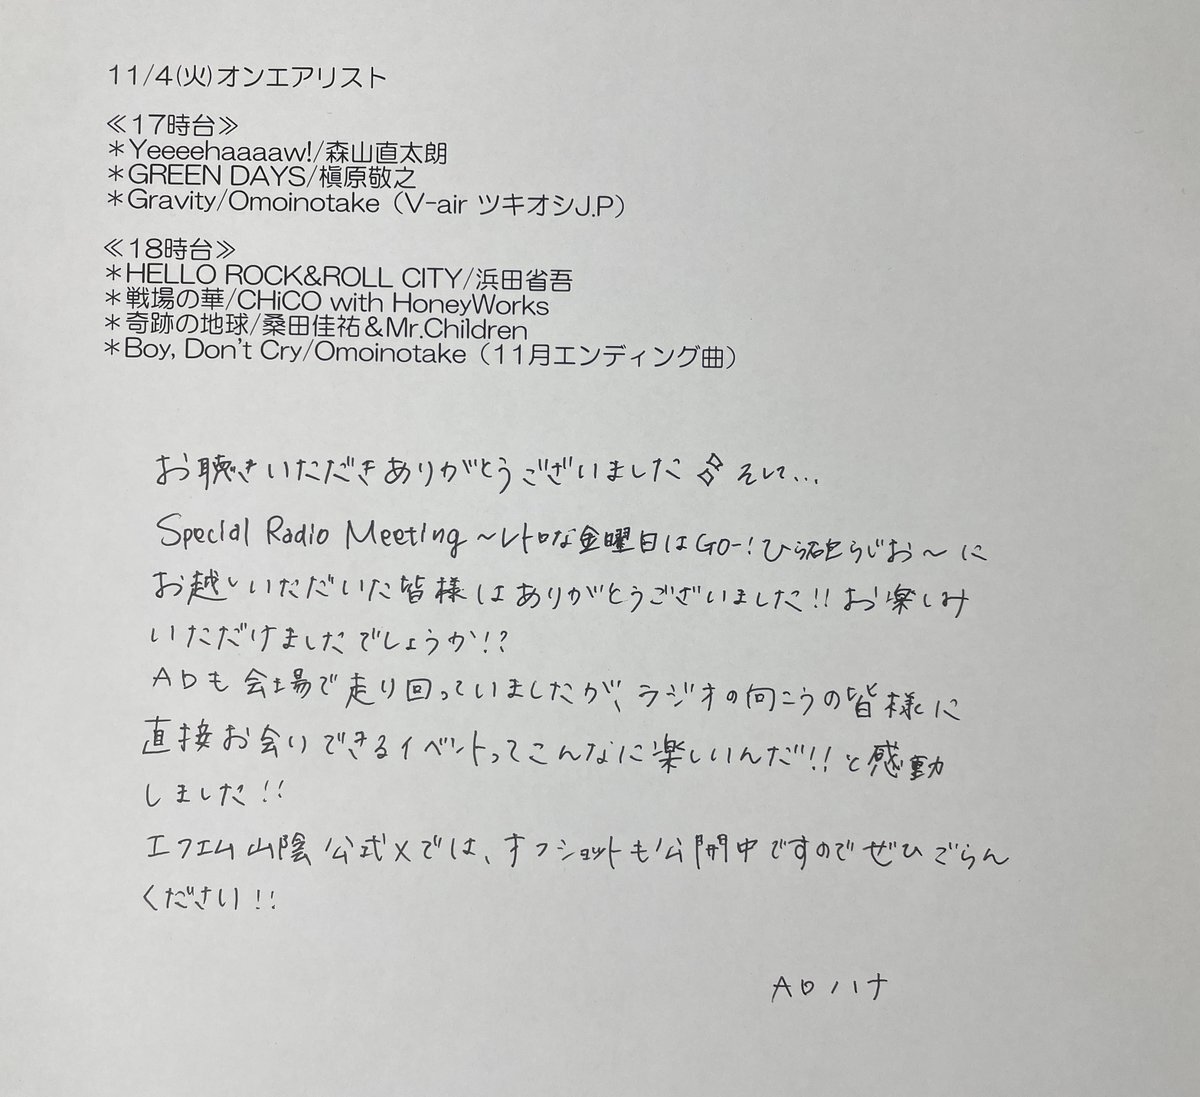 11/4(火)オンエアリスト
≪17時台≫
＊Yeeeehaaaaw!/森山直太朗
＊GREEN DAYS/槇原敬之
＊Gravity/Omoinotake（V-air ツキオシJ.P）
≪18時台≫
＊HELLO ROCK&ROLL CITY/浜田省吾
＊戦場の華/CHiCO with HoneyWorks
＊奇跡の地球/桑田佳祐＆Mr.Children
＊Boy, Don't Cry/Omoinotake（11月エンディング曲）
お聴きいただきありがとうございました そして...
Special Radio Meeting～レトロな金曜日はGO-!ひら砲らじお～に
お越しいただいた皆様はありがとうございました!!お楽しみ
いただけましたでしょうか!?
ADも会場で走り回っていましたが、ラジオの向こうの皆様に
直接お会いできるイベントってこんなに楽しいんだ!!と感動
しました!!
エフエム山陰公式Xでは、オフショットも公開中ですのでぜひごらん
ください!!
ADハナ